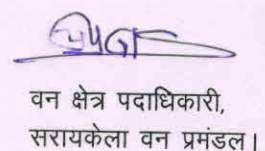 वन क्षेत्र पदाधिकारी,
सरायकेला वन प्रमंडल।